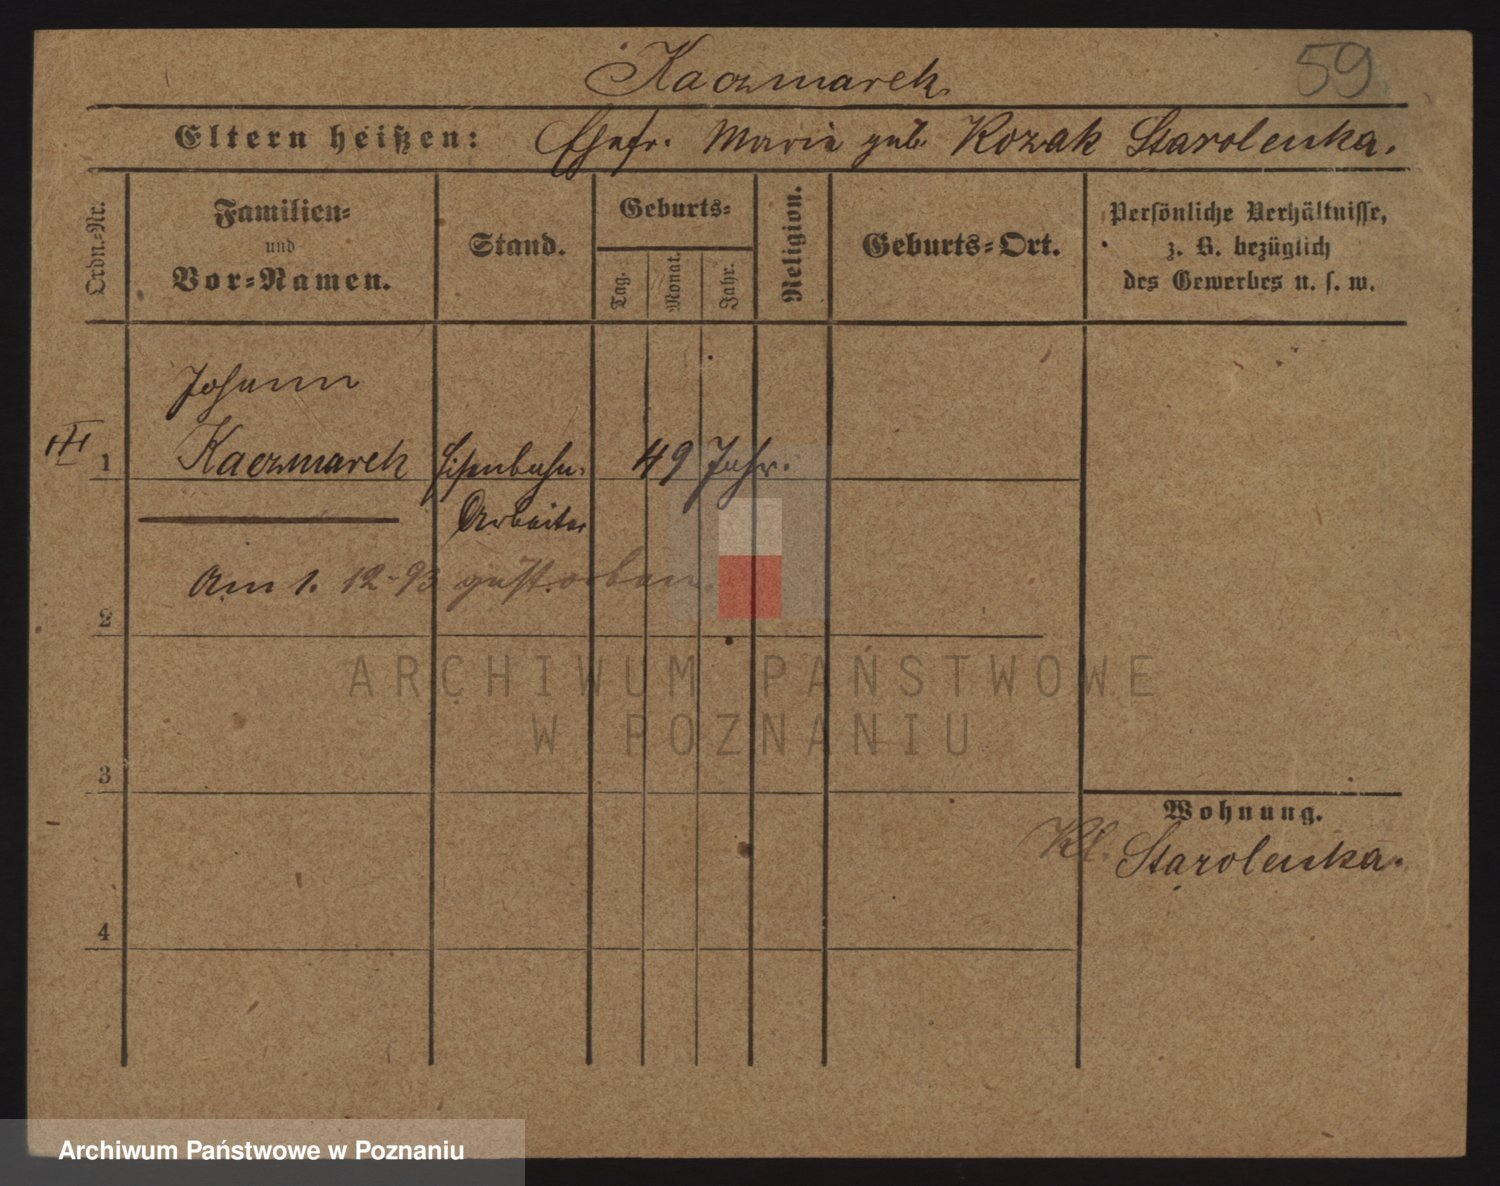 Kaczmarek
59
Eltern heißen: Ehefr. Maria geb. Kozak Starolenka.
Ordn.-Nr.
Familien-
und
Vor-Namen.
Stand.
Geburts-
Tag.
Monat.
Jahr.
Religion.
Geburts-Ort.
Persönliche Verhältnisse,
z. B. bezüglich
des Gewerbes u. s. w.
Johann
III
1 Kaczmarek Eisenbahn- 49 Jahr.
Arbeiter
Am 1. 12-93 gestorben.
2
ARCHIWUM PAŃSTWOWE
W POZNANIU
3
Wohnung.
Kl. Starolenka.
4
Archiwum Państwowe w Poznaniu